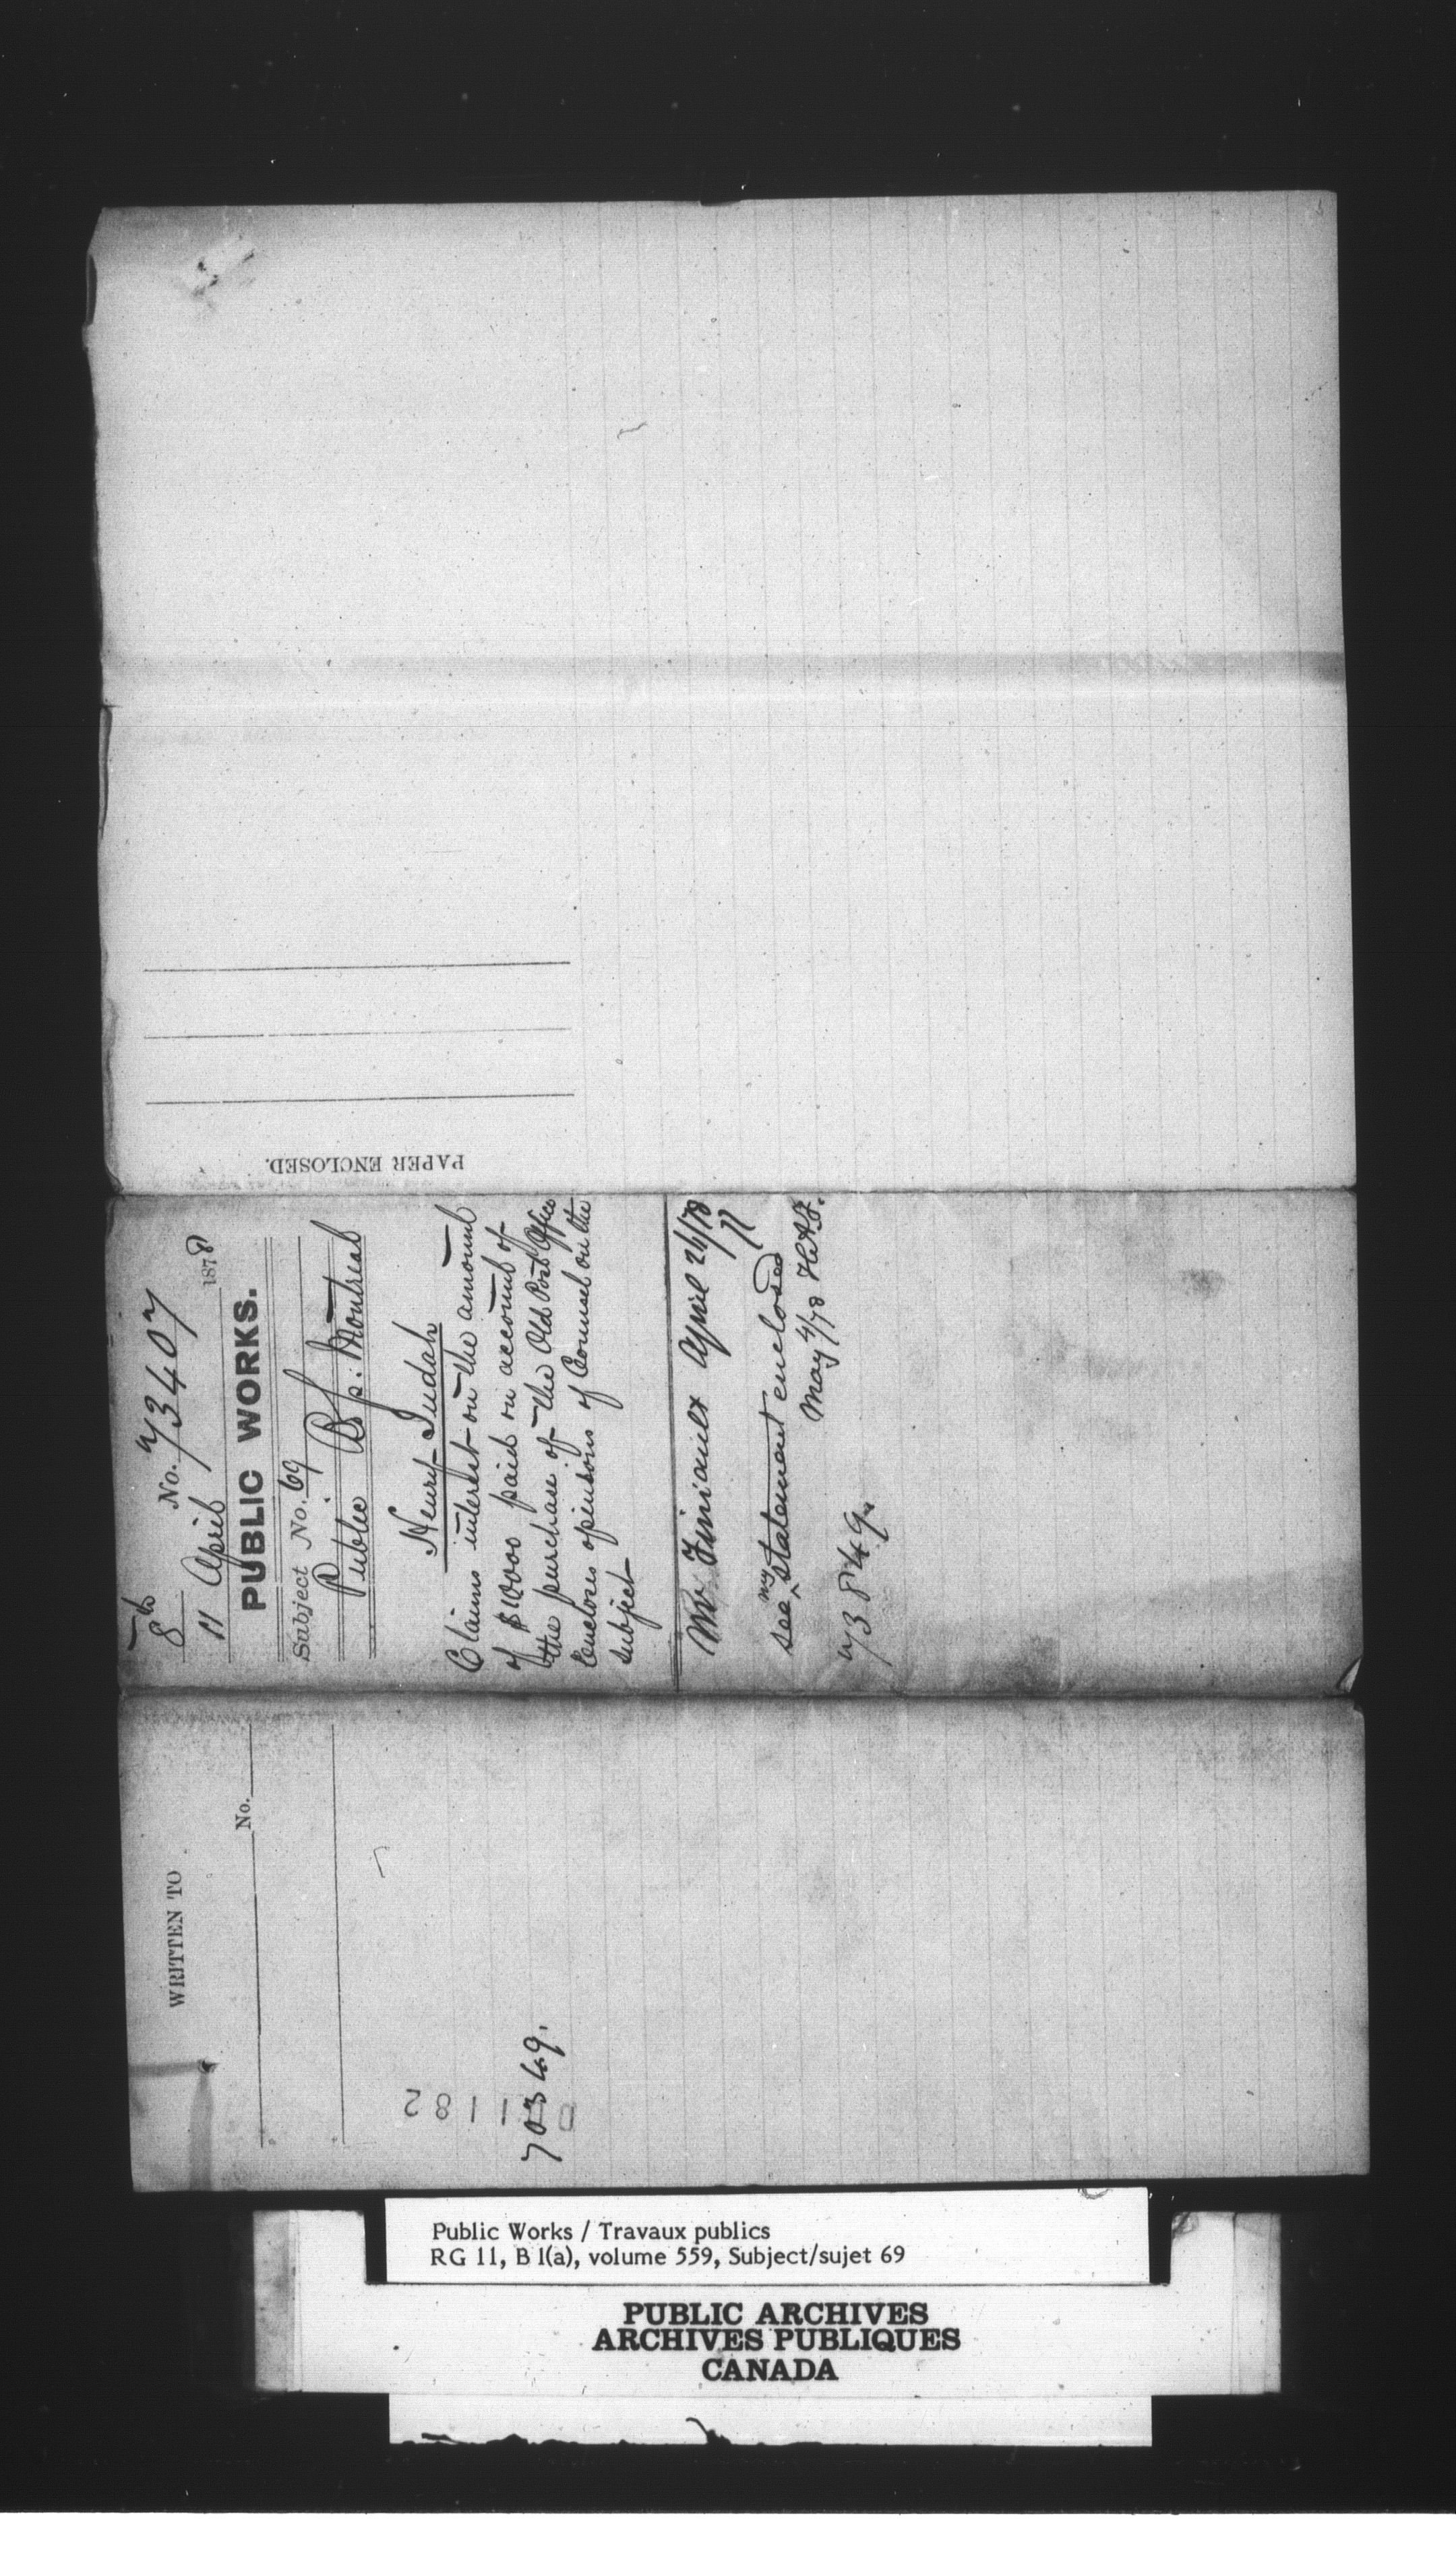 8th No. 73407
11 April 1878
PUBLIC WORKS.
Subject No. 69
Public Bgs: Montreal
Henry Judah
Claims interest on the amount
of $10000 paid on account of
the purchase of the Old Post Office
Encloses opinions of Counsel on the
subject
Mr Finiault April 26/78
see my statement enclosed
May 4/78 H.A.F.
73849.
PAPER ENCLOSED.
WRITTEN TO
No.
70349.
01182
Public Works / Travaux publics
RG 11, B 1(a), volume 559, Subject/sujet 69
PUBLIC ARCHIVES
ARCHIVES PUBLIQUES
CANADA